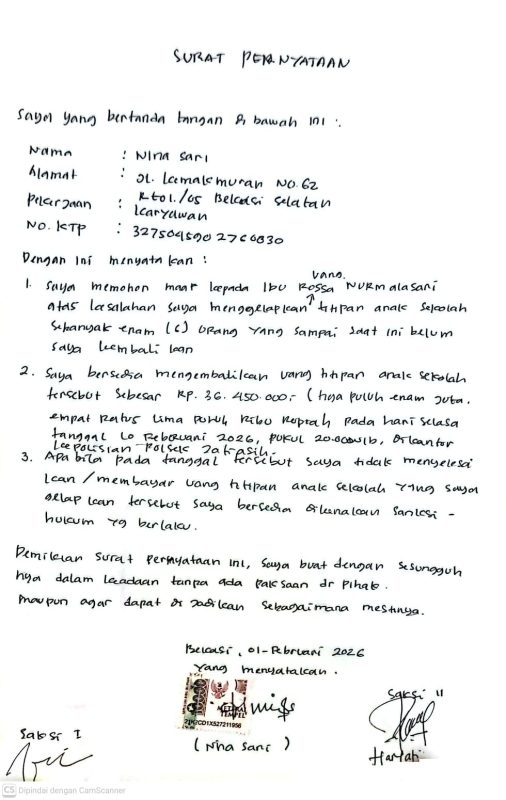 SURAT PERNYATAAN
Saya yang bertanda tangan di bawah ini :
Nama : Nina Sari
Alamat : Jl. Kemakmuran No. 62
Rt01./05 Bekasi Selatan
Pekerjaan : Karyawan
No. KTP :
Dengan ini menyatakan :
1. Saya memohon maaf kepada Ibu Rossa Nurmalasari
uang
atas kesalahan saya menggelapkan titipan anak sekolah
sebanyak enam (6) orang yang sampai saat ini belum
saya kembali kan
2. Saya bersedia mengembalikan uang titipan anak sekolah
tersebut sebesar Rp. 36.450.000,- (tiga puluh enam juta.
empat ratus lima puluh ribu rupiah pada hari selasa
tanggal 10 Februari 2026, pukul 20.00 WIB, di kantor
kepolisian Polsek Jatiasih.
3. Apa bila pada tanggal tersebut saya tidak menyelesai
kan / membayar uang titipan anak sekolah yang saya
gelap kan tersebut saya bersedia di kenakan sanksi -
hukum yg berlaku.
Demikian surat pernyataan ini, saya buat dengan sesungguh
nya dalam keadaan tanpa ada paksaan dr pihak.
maupun agar dapat di jadikan sebagaimana mestinya.
Bekasi, 01-Februari 2026
Yang menyatakan.
10000
TEMPEL
(Nina Sari)
Saksi I
Saksi II
Haryati
CS Dipindai dengan CamScanner